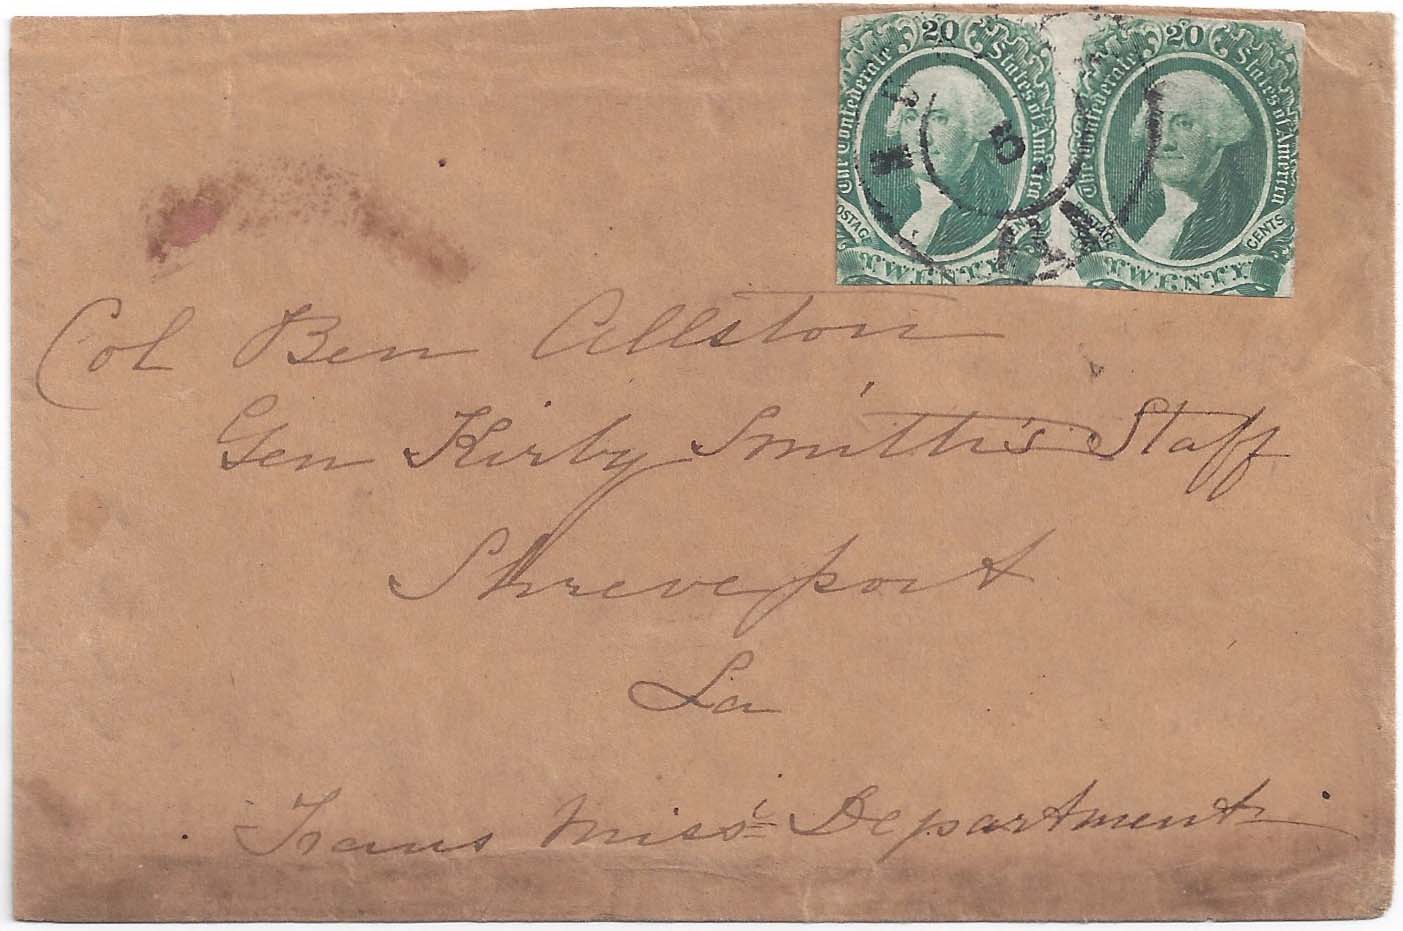 20 20
The Confederate States of America The Confederate States of America
POSTAGE CENTS POSTAGE CENTS
TWENTY TWENTY
5
Col Ben Allston
Gen Kirby Smith's Staff
Shreveport
La
Trans Miss Department